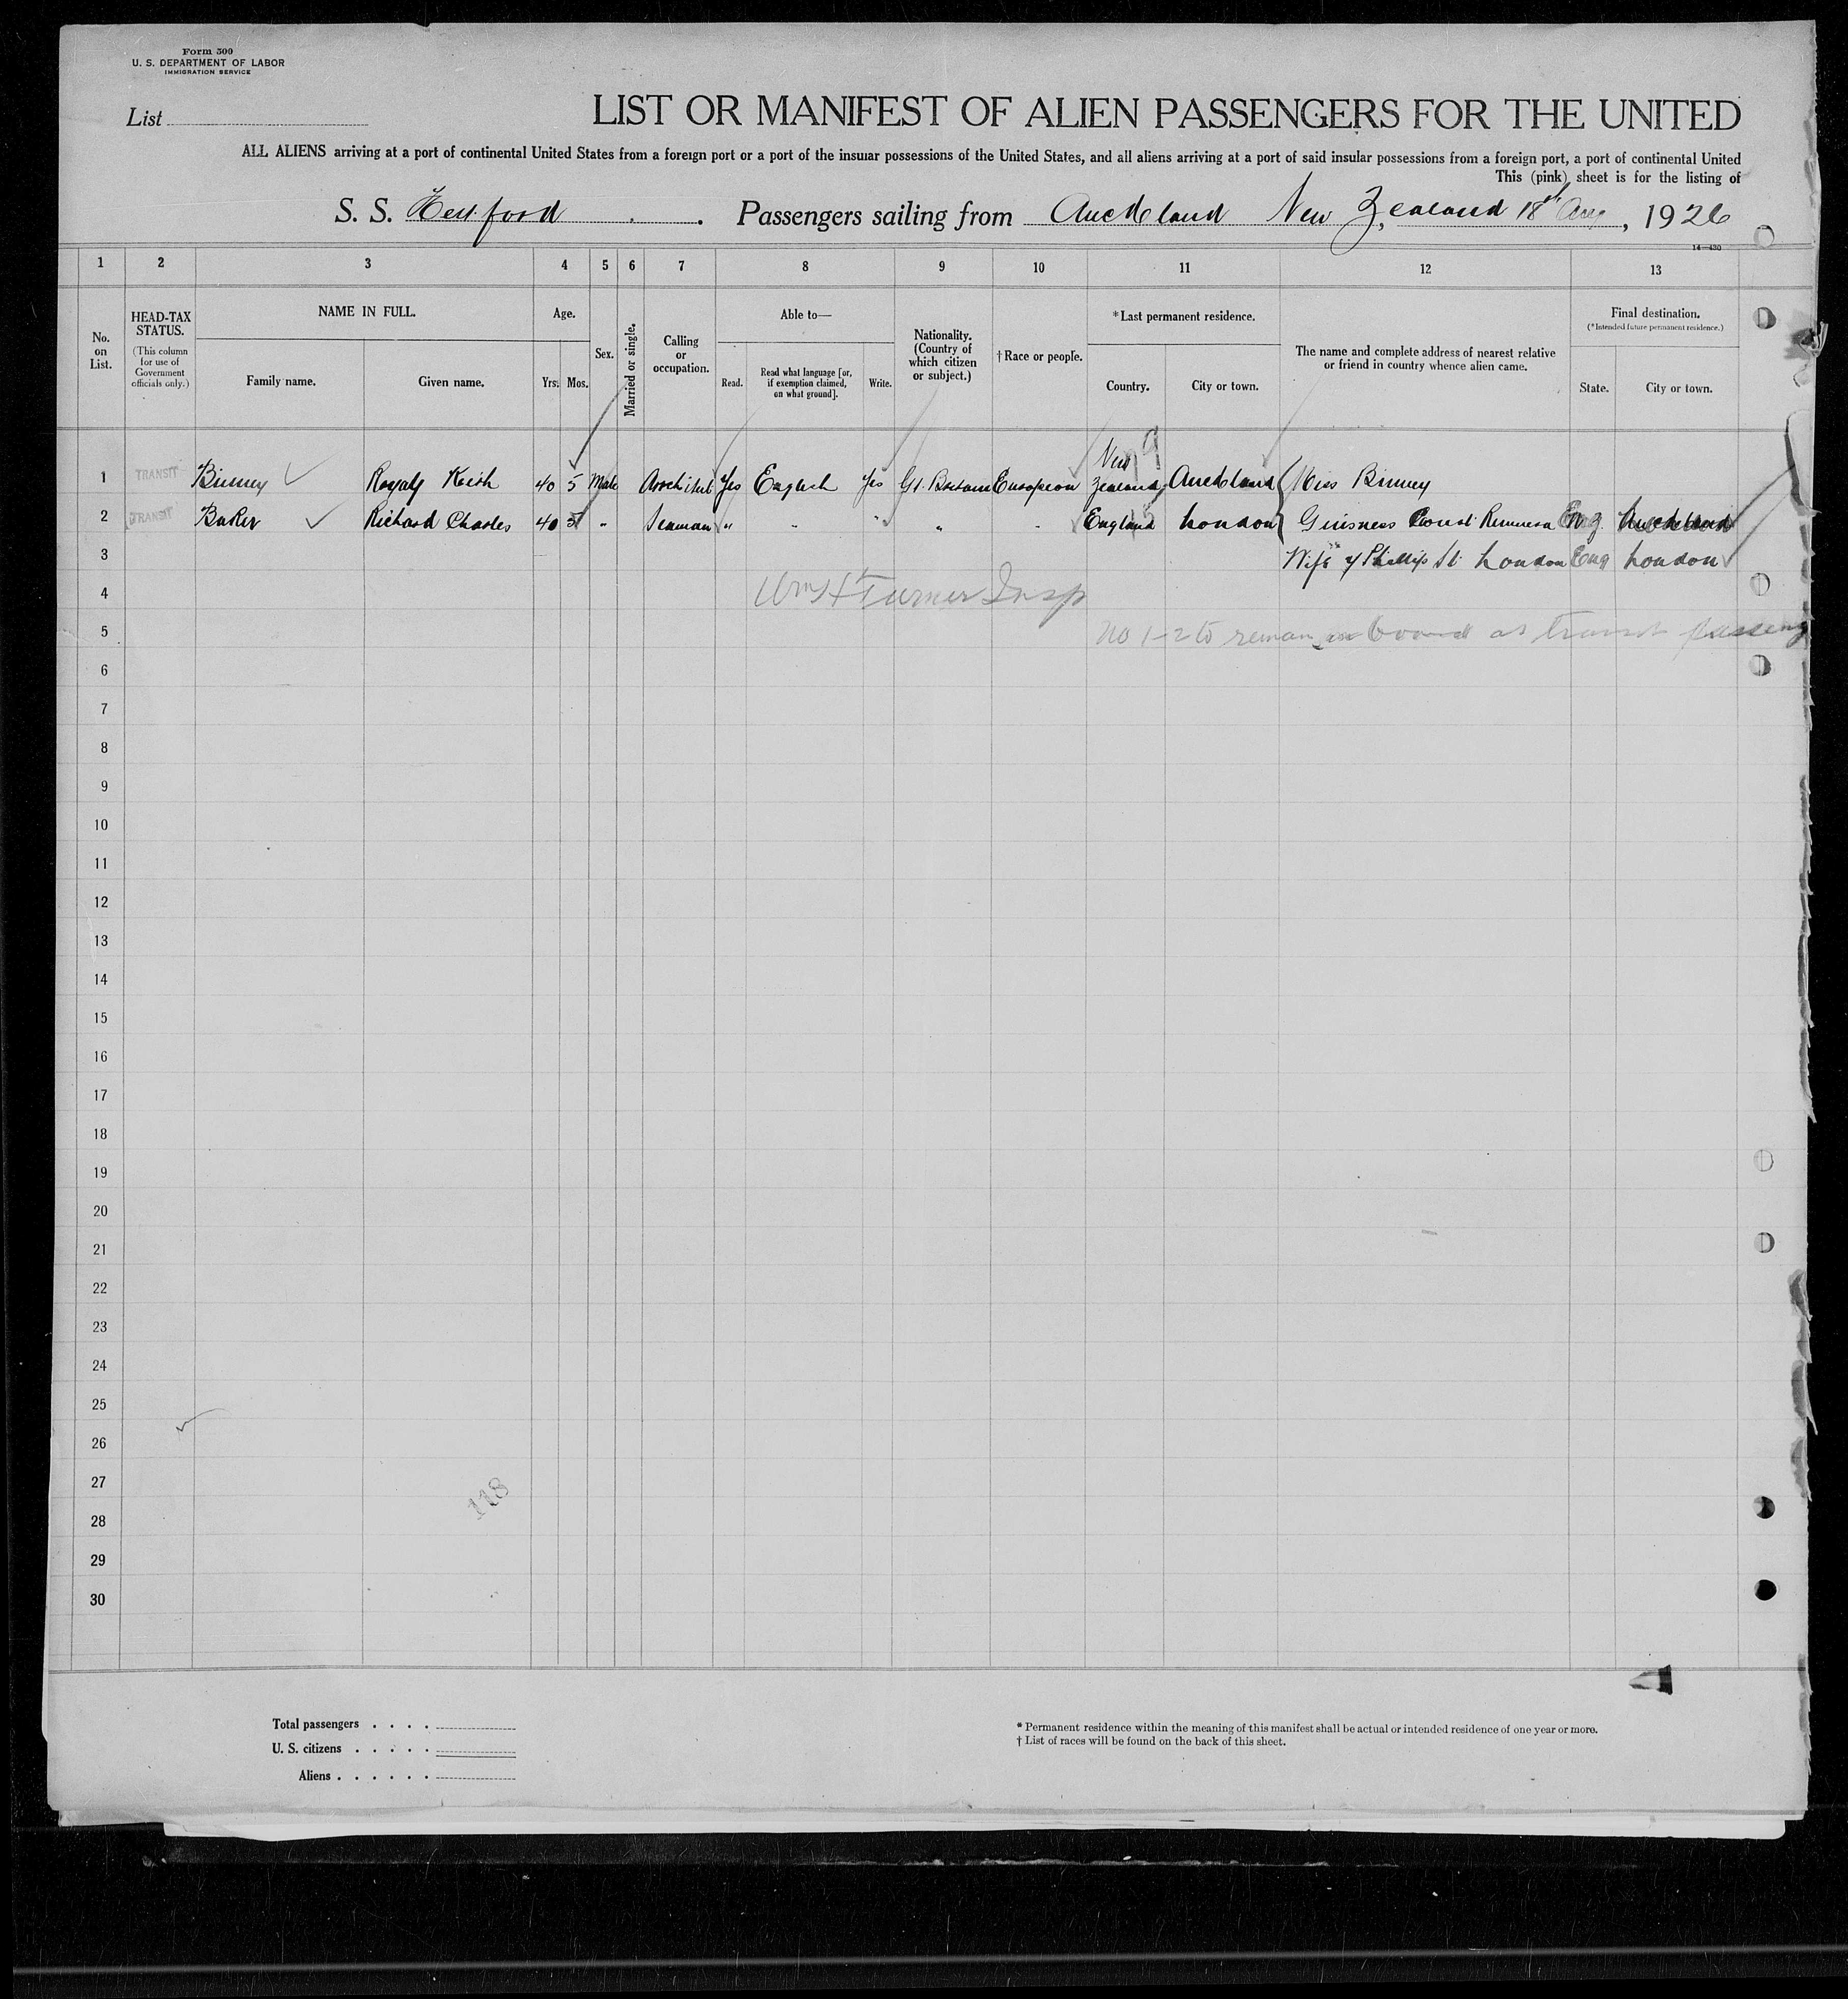 Form 500
U. S. DEPARTMENT OF LABOR
IMMIGRATION SERVICE
List
LIST OR MANIFEST OF ALIEN PASSENGERS FOR THE UNITED
ALL ALIENS arriving at a port of continental United States from a foreign port or a port of the insular possessions of the United States, and all aliens arriving at a port of said insular possessions from a foreign port, a port of continental United
This (pink) sheet is for the listing of
S. S. Passengers sailing from Auckland New Zealand 18th Aug, 1926
14—430
1 2 3 4 5 6 7 8 9 10 11 12 13
No. on List.
HEAD-TAX STATUS.
(This column for use of Government officials only.)
NAME IN FULL.
Family name.
Given name.
Age.
Yrs. Mos.
Sex.
Married or single.
Calling or occupation.
Able to—
Read.
Read what language [or, if exemption claimed, on what ground].
Write.
Nationality. (Country of which citizen or subject.)
† Race or people.
*Last permanent residence.
Country.
City or town.
The name and complete address of nearest relative or friend in country whence alien came.
Final destination.
(*Intended future permanent residence.)
State.
City or town.
1 TRANSIT Binney Keith 40 5 Male Architect Yes English Yes Gt. Britain European New Zealand Auckland Miss Binney
2 TRANSIT Baker Richard Charles 40 5 " Seaman " " " " " England London Remuera N Z. Auckland
3 Wife Phillips St London Eng London
4 Wm H Turner Insp
5 no 1-2 to remain on board as transit passeng
6
7
8
9
10
11
12
13
14
15
16
17
18
19
20
21
22
23
24
25
26
27
118
28
29
30
Total passengers . . . .
U. S. citizens . . . . .
Aliens . . . . . .
* Permanent residence within the meaning of this manifest shall be actual or intended residence of one year or more.
† List of races will be found on the back of this sheet.